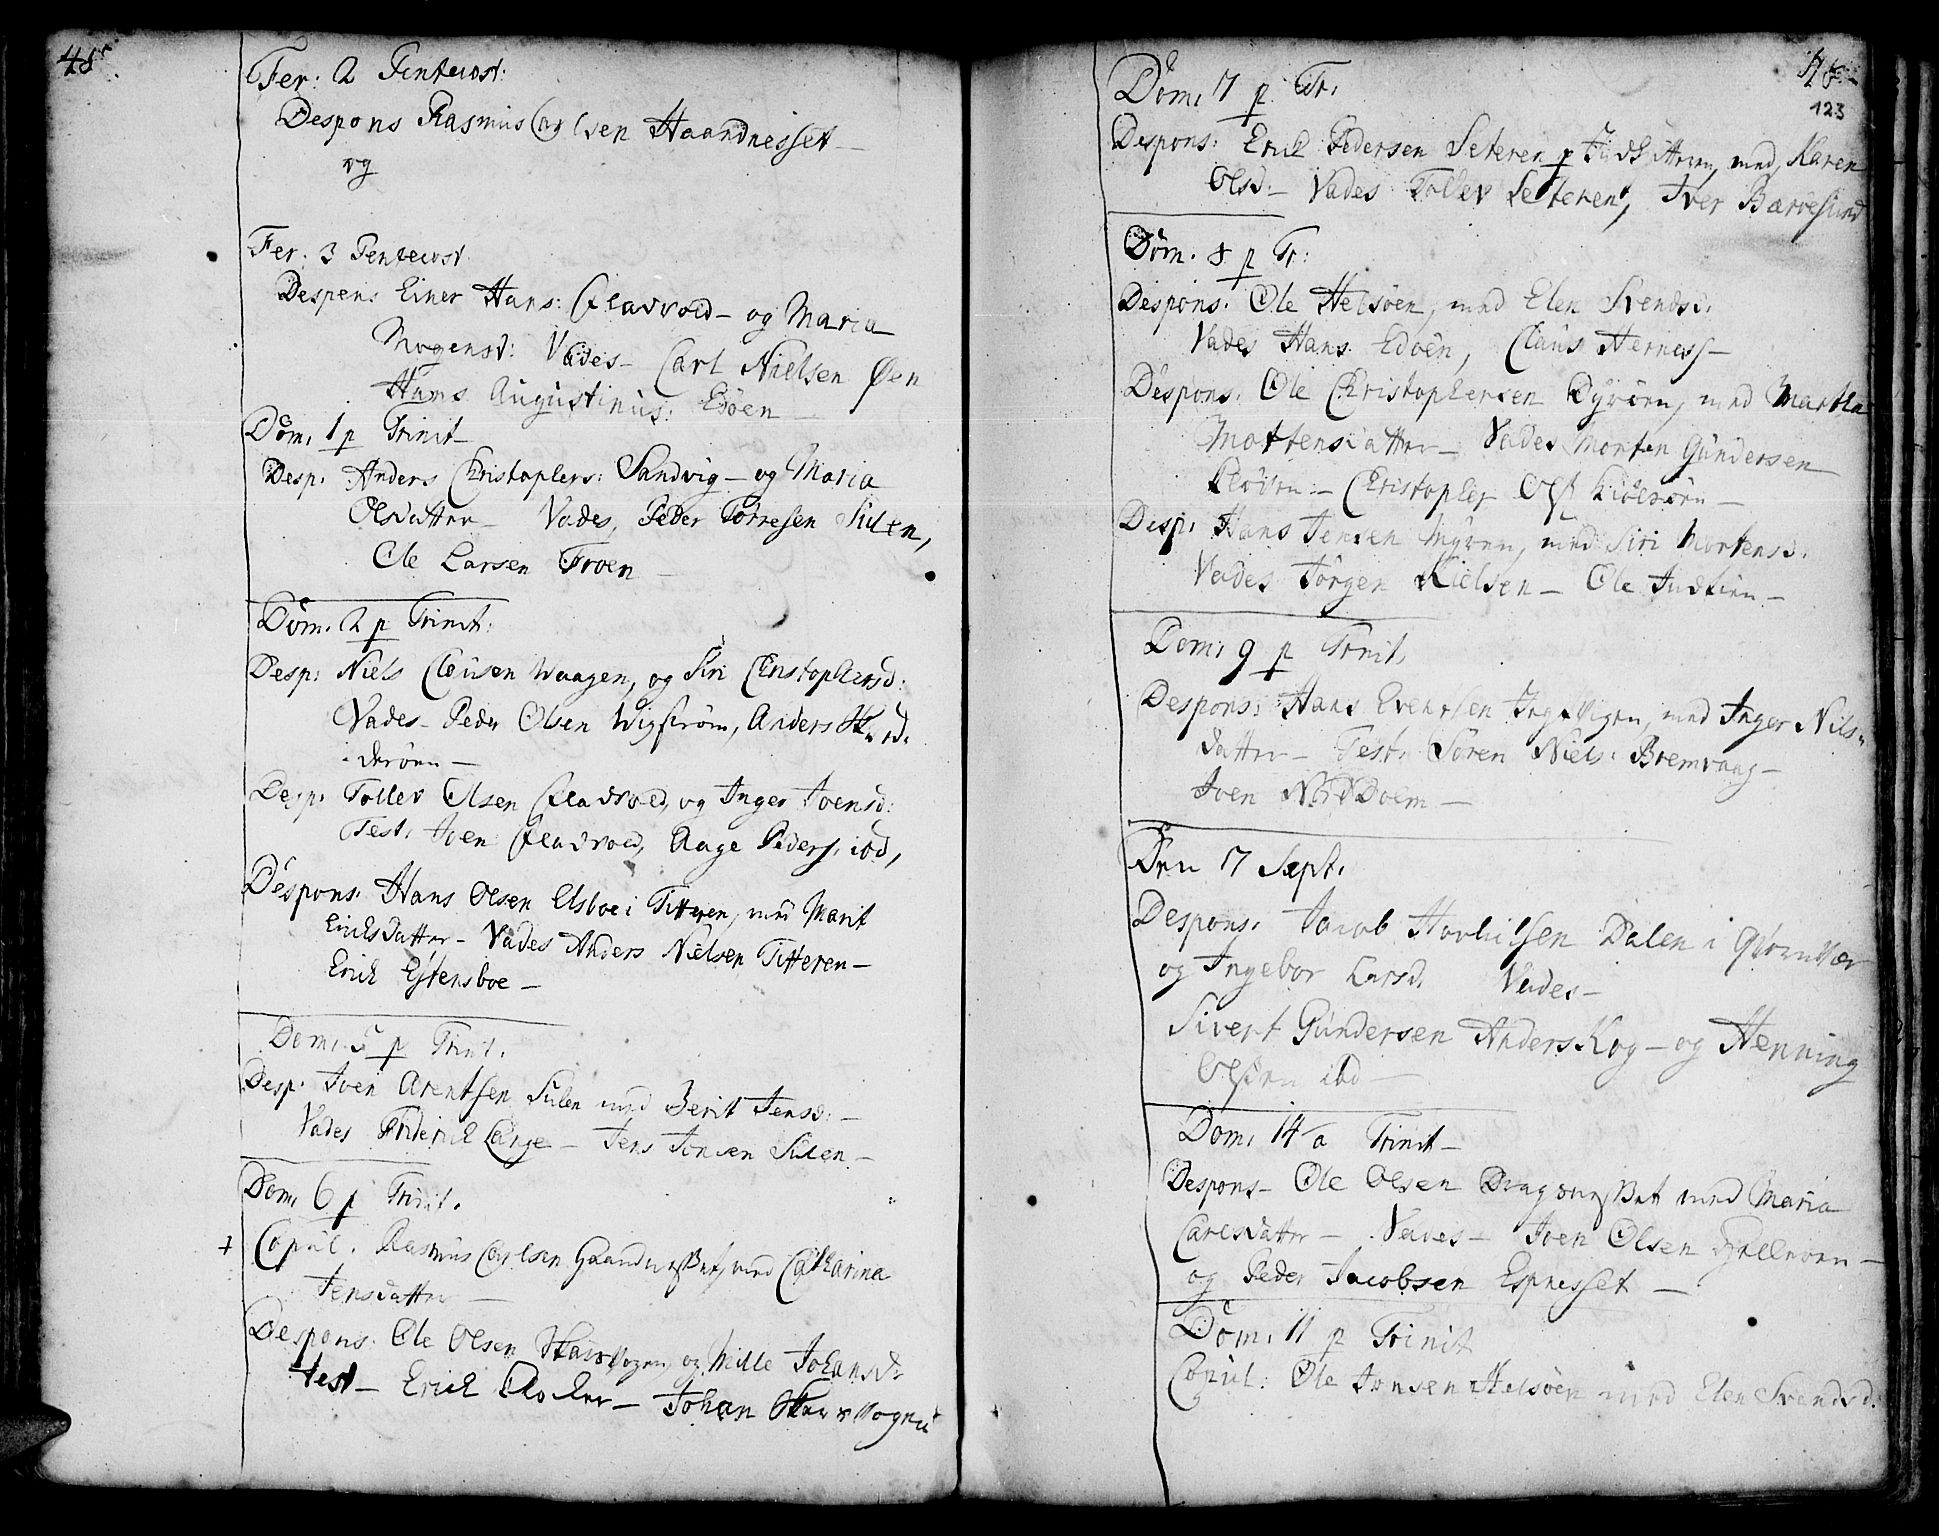 48
Fer: 2 Pentecost:
Despons Rasmus Carlsen Haandnesset —
og
Fer: 3 Pentecost
Despens Einer Hans: Gladvold — og Maria
Mogensd: Vades — Carl Nielsen Øen
Hans Augustinus: Edøen —
Dom, 1 p Trinit
Desp: Anders Christophers: Sandvig — og Maria
Olsdatter — Vades, Peder Torresen Sulen,
Ole Larsen Froen —
Dom. 2 p Trinit:
Desp: Niels Clausen Waagen, og Siri Christophersd:
Vades — Peder Olsen Wigstrøm, Anders
derøen —
Desp: Tollev Olsen Gladvold, og Inger Ivensd:
Test: Iven Gladvold, Aage Peders. ibd,
Despons: Hans Olsen Elsboe i Titteren, med Marit
Eriksdatter — Vades Anders Nielsen Titteren —
Erich Estensboe —
Dom. 5 p Trinit.
Desp. Iven Arentsen Sulen med Berit Jensd: —
Vades Friderick Lange — Jens Jonsen Sulen —
Dom, 6 p Trinit.
+ Copul. Rasmus Carlsen Haandnesset, med Catharina
Jensdatter —
Despons: Ole Olsen Skarsvogen, og Mille Johansdr
Test — Erich — Johan Skarsvogen
123
Dom, 7 p Tr.
Despons: Erich Pedersen Seteren p med, Karen
Olsd: — Vades Tollev Seteren, Iver Bærøesund
Dom. 8 p Tr:
Despons: Ole Helsøen, med Elen Svendsd.
Vades Hans Edøen, Claus Herness —
Despons. Ole Christophersen Dyrøen, med Martha
Mortensdatter — Vades Morten Gundersen
— Christopher Ols
Desp. Hans Jensen Myren, med Siri Mortensd.
Vades Jørgen Nielsen — Ole —
Dom, 9 p Trinit.
Despons: Hans Evensen Ingevigen, med Inger Nils-
datter — Test. Søren Niels: Bremvaag —
Iven Norddoem —
Den 17 Sept.
Despons. Jacob Dalen i
og Ingebor Larsd. Vades —
Sivert Gundersen Anderskog — og Henning
Olsen ibd —
Dom, 14 a Trinit —
Despons — Ole Olsen Dragsnesset med Maria
Carlsdatter — Vades — Iven Olsen —
og Peder Jacobsen Espnesset —
Dom, 11 p Trinit
Copul: Ole Jonsen Helsøen med Elen Svendsd: